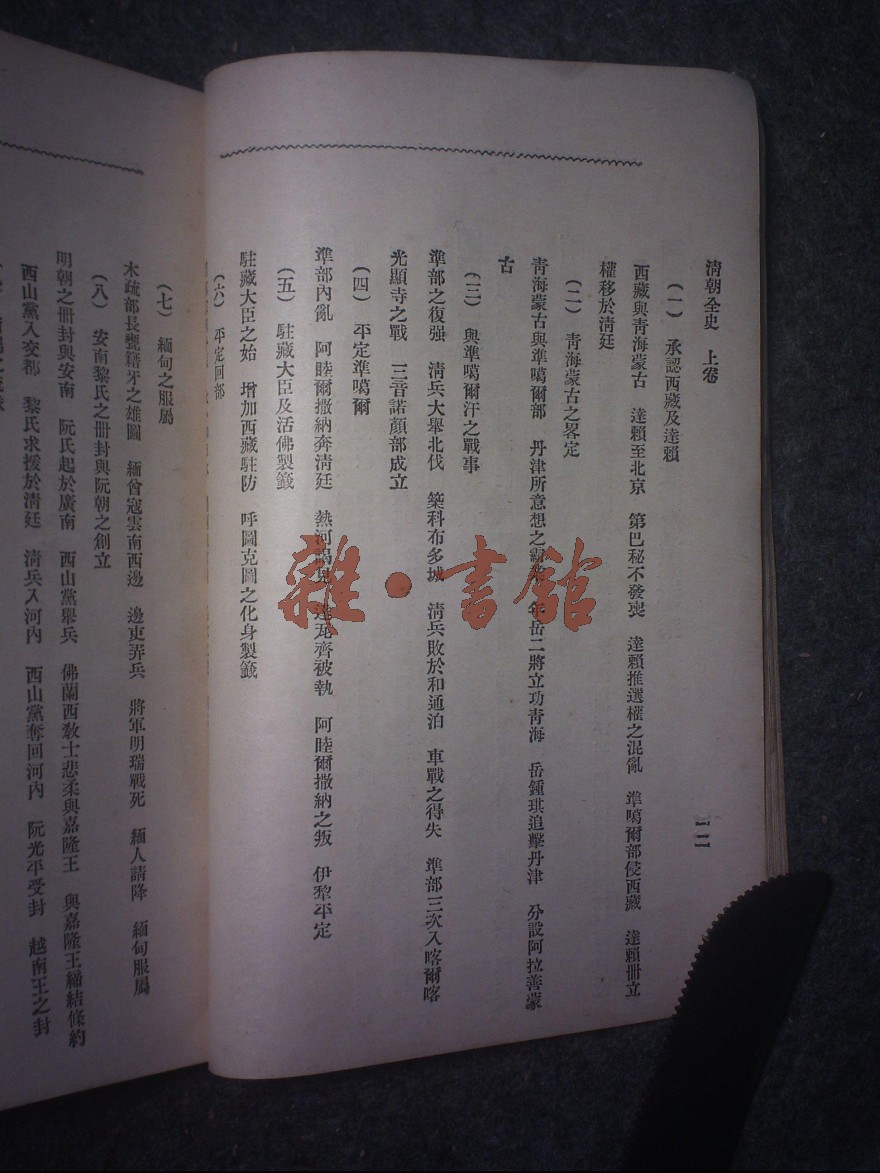 清朝全史　上卷
一二
（一）　承認西藏及達賴
西藏與靑海蒙古　達賴至北京　第巴秘不發喪　達賴推選權之混亂　準噶爾部侵西藏　達賴冊立
權移於淸廷
（二）　靑海蒙古之畧定
靑海蒙古與準噶爾部　丹津所意想之霸業　年岳二將立功靑海　岳鍾琪追擊丹津　分設阿拉善蒙
古
（三）　與準噶爾汗之戰事
準部之復强　淸兵大舉北伐　築科布多城　淸兵敗於和通泊　車戰之得失　準部三次入喀爾喀
光顯寺之戰　三音諾顏部成立
（四）　平定準噶爾
準部內亂　阿睦爾撒納奔淸廷　熱河謁見　達瓦齊被執　阿睦爾撒納之叛　伊犂平定
（五）　駐藏大臣及活佛製籤
駐藏大臣之始　增加西藏駐防　呼圖克圖之化身製籤
（六）　平定回部
（七）　緬甸之服屬
木疏部長甕籍牙之雄圖　緬酋寇雲南西邊　邊吏弄兵　將軍明瑞戰死　緬人請降　緬甸服屬
（八）　安南黎氏之冊封與阮朝之創立
明朝之冊封與安南　阮氏起於廣南　西山黨舉兵　佛蘭西敎士悲柔與嘉隆王　與嘉隆王締結條約
西山黨入交都　黎氏求援於淸廷　淸兵入河內　西山黨奪回河內　阮光平受封　越南王之封
雜·書館